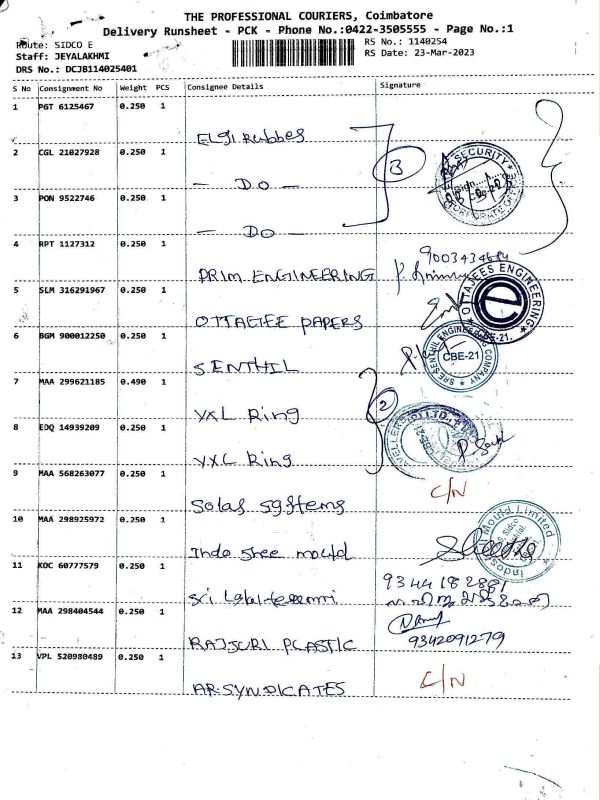 THE PROFESSIONAL COURIERS, Coimbatore
Delivery Runsheet - PCK - Phone No.:0422-3505555 - Page No.:1
Route: SIDCO E
RS No.: 1140254
Staff: JEYALAKHMI
RS Date: 23-Mar-2023
DRS No.: DCJB114025401
S No Consignment No Weight PCS Consignee Details Signature
1 PGT 6125467 0.250 1
Elgi Rubber
2 CGL 21027928 0.250 1
3 SECURITY
- DO -
CORPORATE OFFICE
3 PON 9522746 0.250 1
- DO -
4 RPT 1127312 0.250 1
PRIM ENGINEERING
5 SLM 316291967 0.250 1
OTTAJEES ENGINEERING
e
CBE-21.
OTTAGEE PAPERS
6 BGM 900012250 0.250 1
SENTHIL ENGINEERING COMPANY
CBE-21
SENTHIL
7 MAA 299621185 0.490 1
YXL Ring
2
8 EDQ 14939209 0.250 1
YXC Ring
9 MAA 568263077 0.250 1
C/N
Solas systems
10 MAA 298925972 0.250 1
Mould Limited
Indo shee mould
11 KOC 60777579 0.250 1
Sci
12 MAA 298404544 0.250 1
RAJSURI PLASTIC
9342091279
13 VPL 520980489 0.250 1
C/N
AR.SYNDICATES